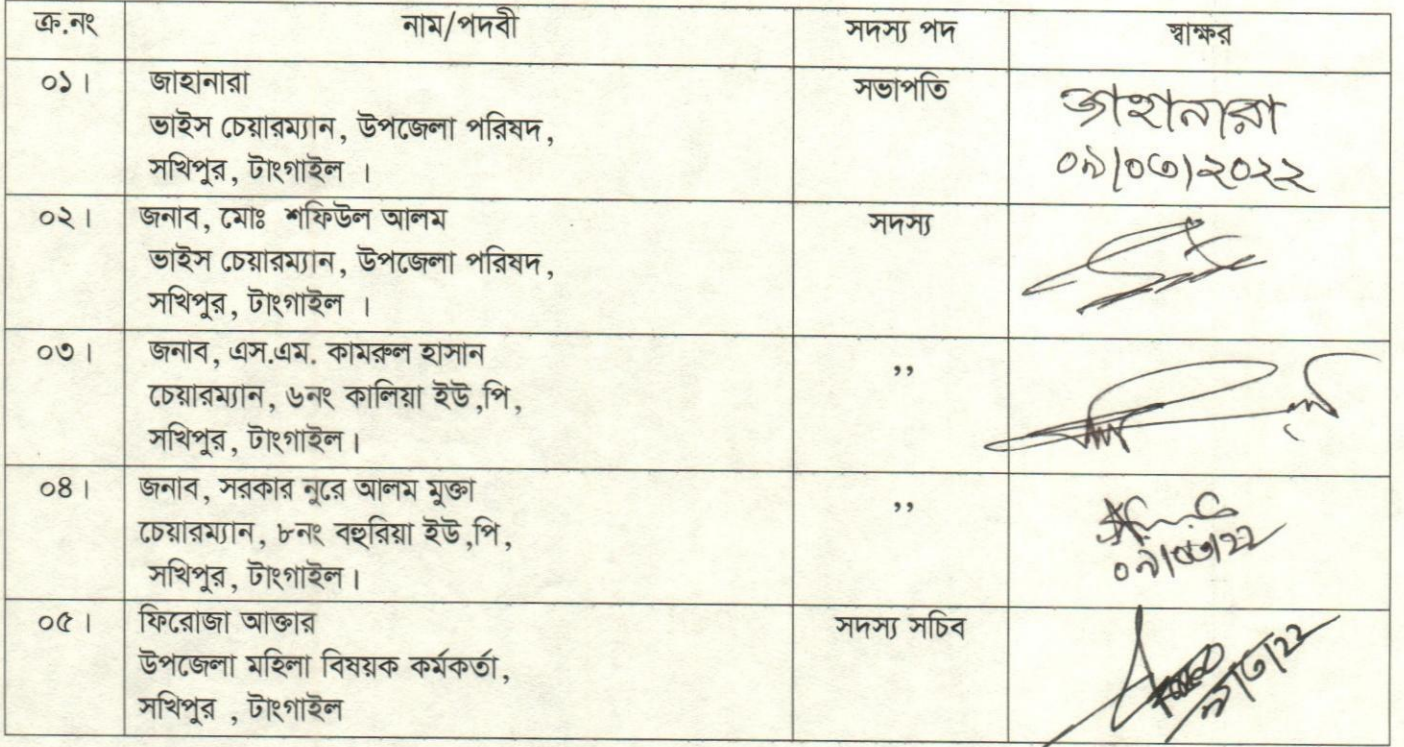 ক্র.নং নাম/পদবী সদস্য পদ স্বাক্ষর
০১। জাহানারা সভাপতি জাহানারা
ভাইস চেয়ারম্যান, উপজেলা পরিষদ,
সখিপুর, টাংগাইল । ০৯/০৩/২০২২
০২। জনাব, মোঃ শফিউল আলম সদস্য
ভাইস চেয়ারম্যান, উপজেলা পরিষদ,
সখিপুর, টাংগাইল ।
০৩। জনাব, এস.এম. কামরুল হাসান ,,
চেয়ারম্যান, ৬নং কালিয়া ইউ,পি,
সখিপুর, টাংগাইল।
০৪। জনাব, সরকার নুরে আলম মুক্তা ,,
চেয়ারম্যান, ৮নং বহুরিয়া ইউ,পি,
সখিপুর, টাংগাইল। ০৯/০৩/২২
০৫। ফিরোজা আক্তার সদস্য সচিব
উপজেলা মহিলা বিষয়ক কর্মকর্তা,
সখিপুর , টাংগাইল ৯/৩/২২